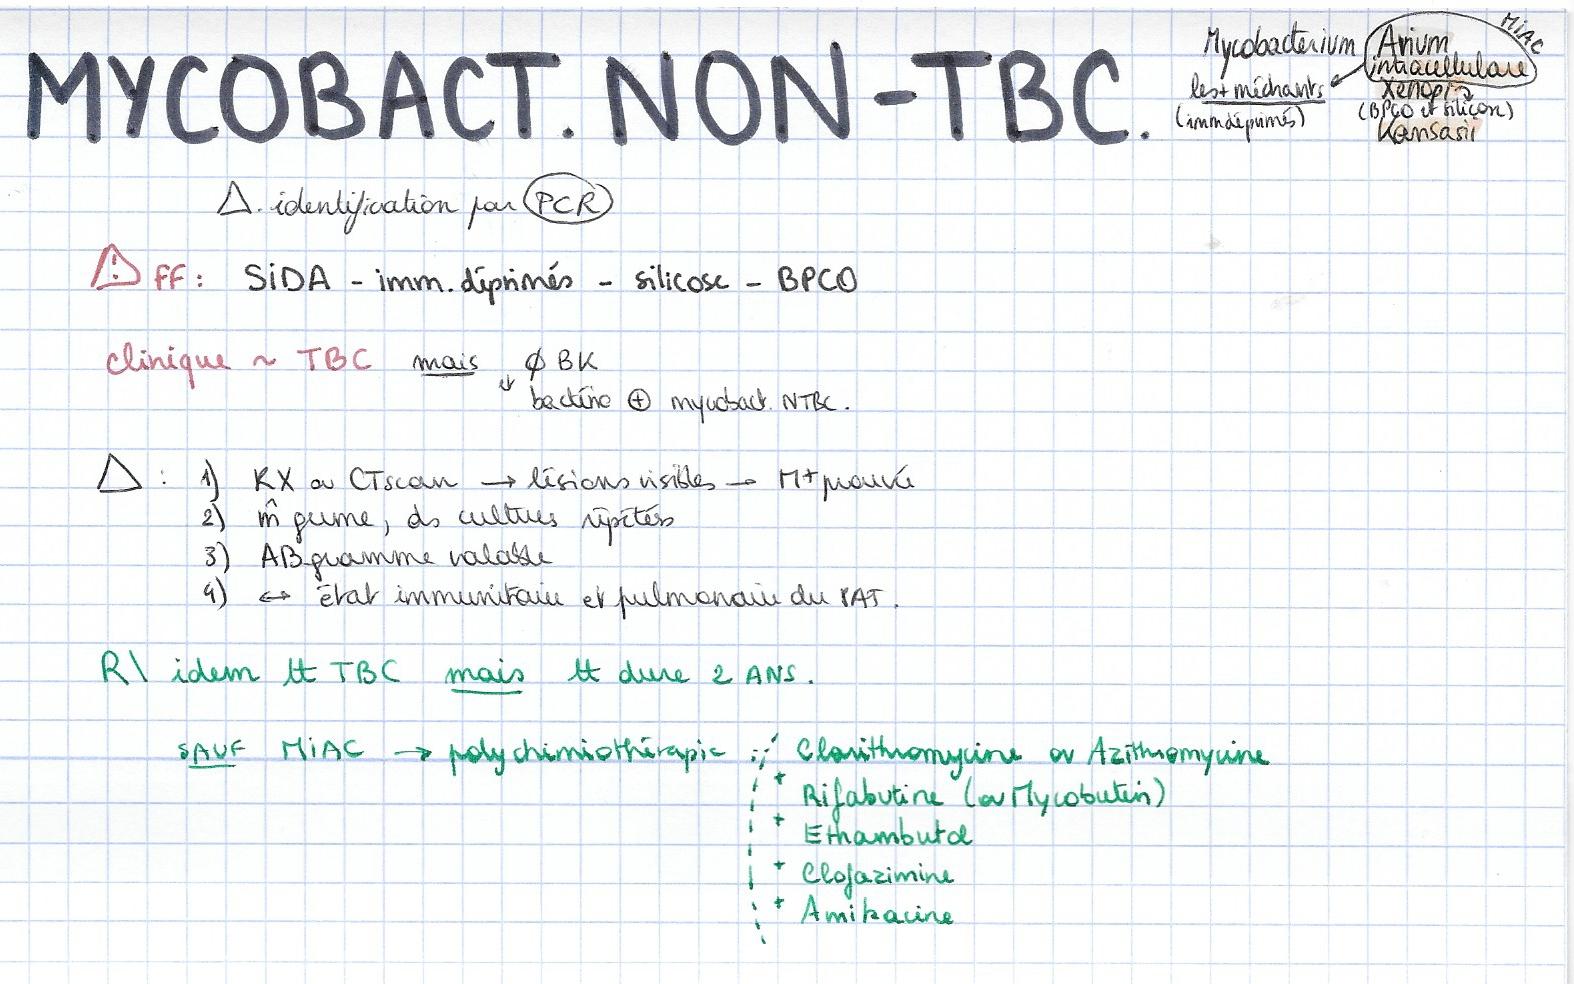 MYCOBACT. NON-TBC.
Mycobacterium Avium
MiAC
intracellulare
les + méchants
(immdéprimés)
Xenopi
(BPCO et silicon)
Kansasii
Δ. identification par PCR
! FF : SiDA - imm. déprimés - silicose - BPCO
clinique ~ TBC mais ↓ ∅ BK
bactério ⊕ mycobact. NTBC.
Δ : 1) RX ou CTscan → lésions visibles → M+ prouvé
2) m̂ germe, ds cultures répétés
3) ABgramme valable
4) ↔ état immunitaire et pulmonaire du PAT.
R\ idem tt TBC mais tt dure 2 ANS.
SAUF MiAC → polychimiothérapie : Clarithromycine ou Azithromycine
+ Rifabutine (ou Mycobutin)
+ Ethambutol
+ Clofazimine
+ Amikacine